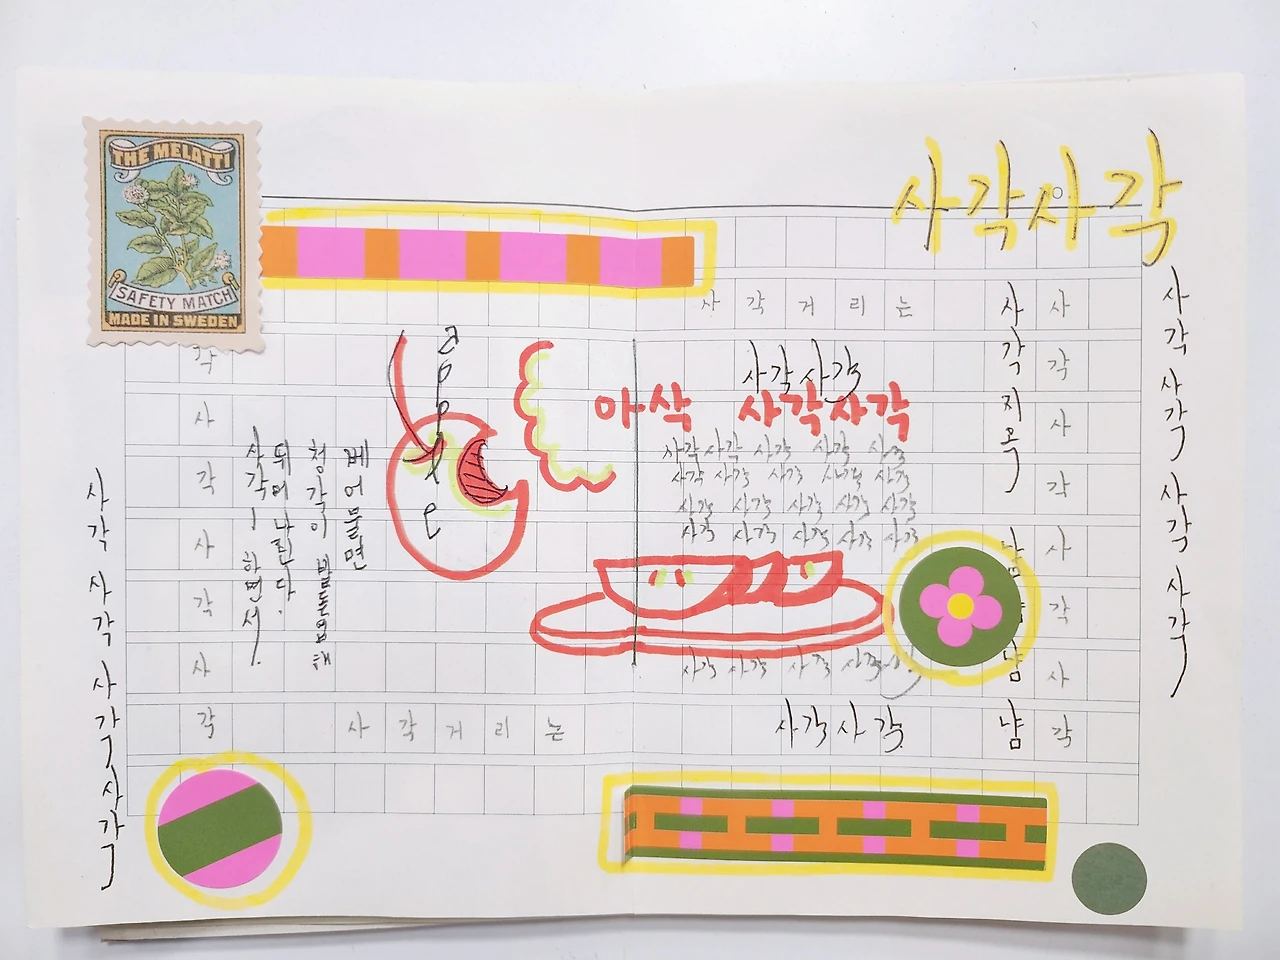 THE MELATTI
SAFETY MATCH
MADE IN SWEDEN
사각사각
사각거리는
사각사각
아삭 사각사각
사각 사각 사각 사각 사각
사각 사각 사각 사각 사각
사각 사각 사각 사각 사각
사각 사각 사각 사각 사각
사각 사각 사각
사각사각
사각 사각 사각 사각
사각사각사각사각
사각
냠
apple
베어물면
청각이
튀어나린다.
사각! 하면서
사각거리는
각사각사각사각
사각 사각 사각 사각